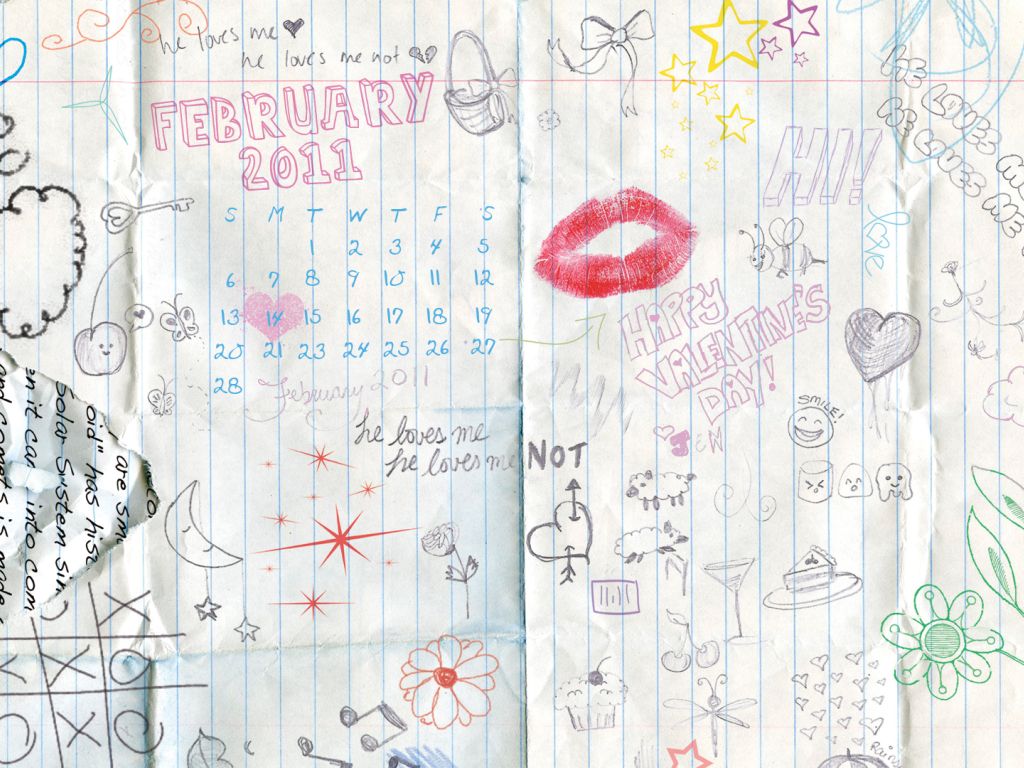 he loves me
he loves me not
FEBRUARY
2011
S M T W T F S
1 2 3 4 5
6 7 8 9 10 11 12
13 14 15 16 17 18 19
20 21 23 24 25 26 27
28
February 2011
he loves me
he loves me NOT
HE LOVES ME
HE LOVES ME
HI!
love
HAPPY
VALENTINE'S
DAY!
JEN
SMILE!
are sm
oid" has hist
Solar System sin
en it can into com
and comets is made
X
X O
X O
Rain